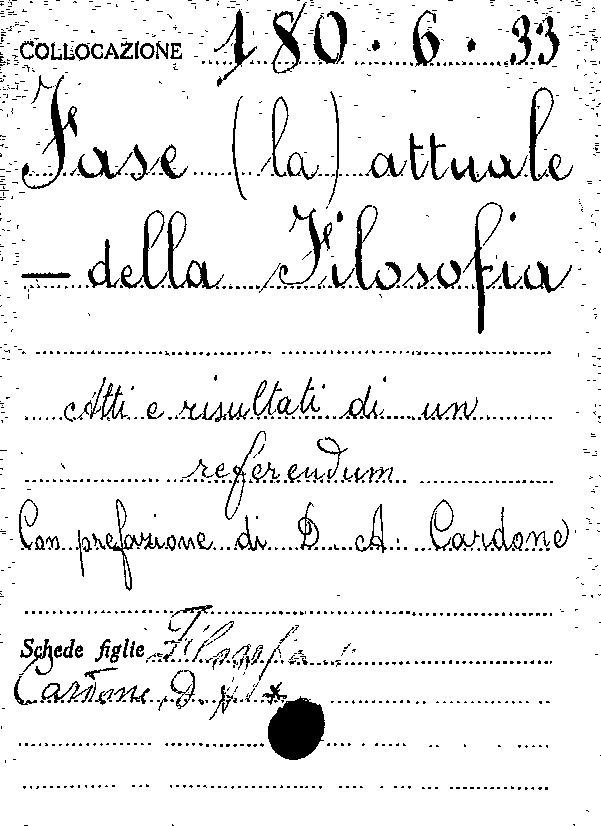 COLLOCAZIONE 180.6.33
Fase (la) attuale
— della Filosofia
Atti e risultati di un
referendum
Con prefazione di D. A. Cardone
Schede figlie Filosofia
Cardone D. A *